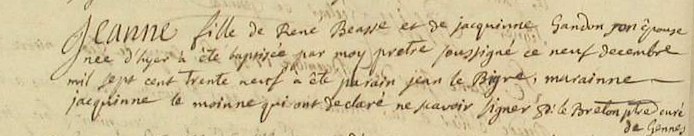 Jeanne fille de René Beasse et de jacquinne Gandon son épouse
née d'hyer à été baptisée par moy pretre soussigné ce neuf decembre
mil sept cent trente neuf à été parain jean le Bigre, marainne
jacquinne le moinne qui ont declaré ne scavoir signer le Breton ptre curé
de Gennes